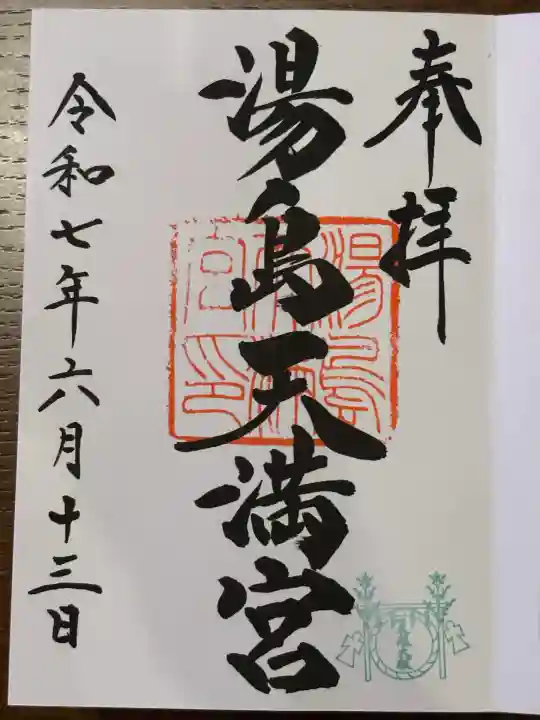 奉拝
湯島天満宮
湯島天満宮印
令和七年六月十三日